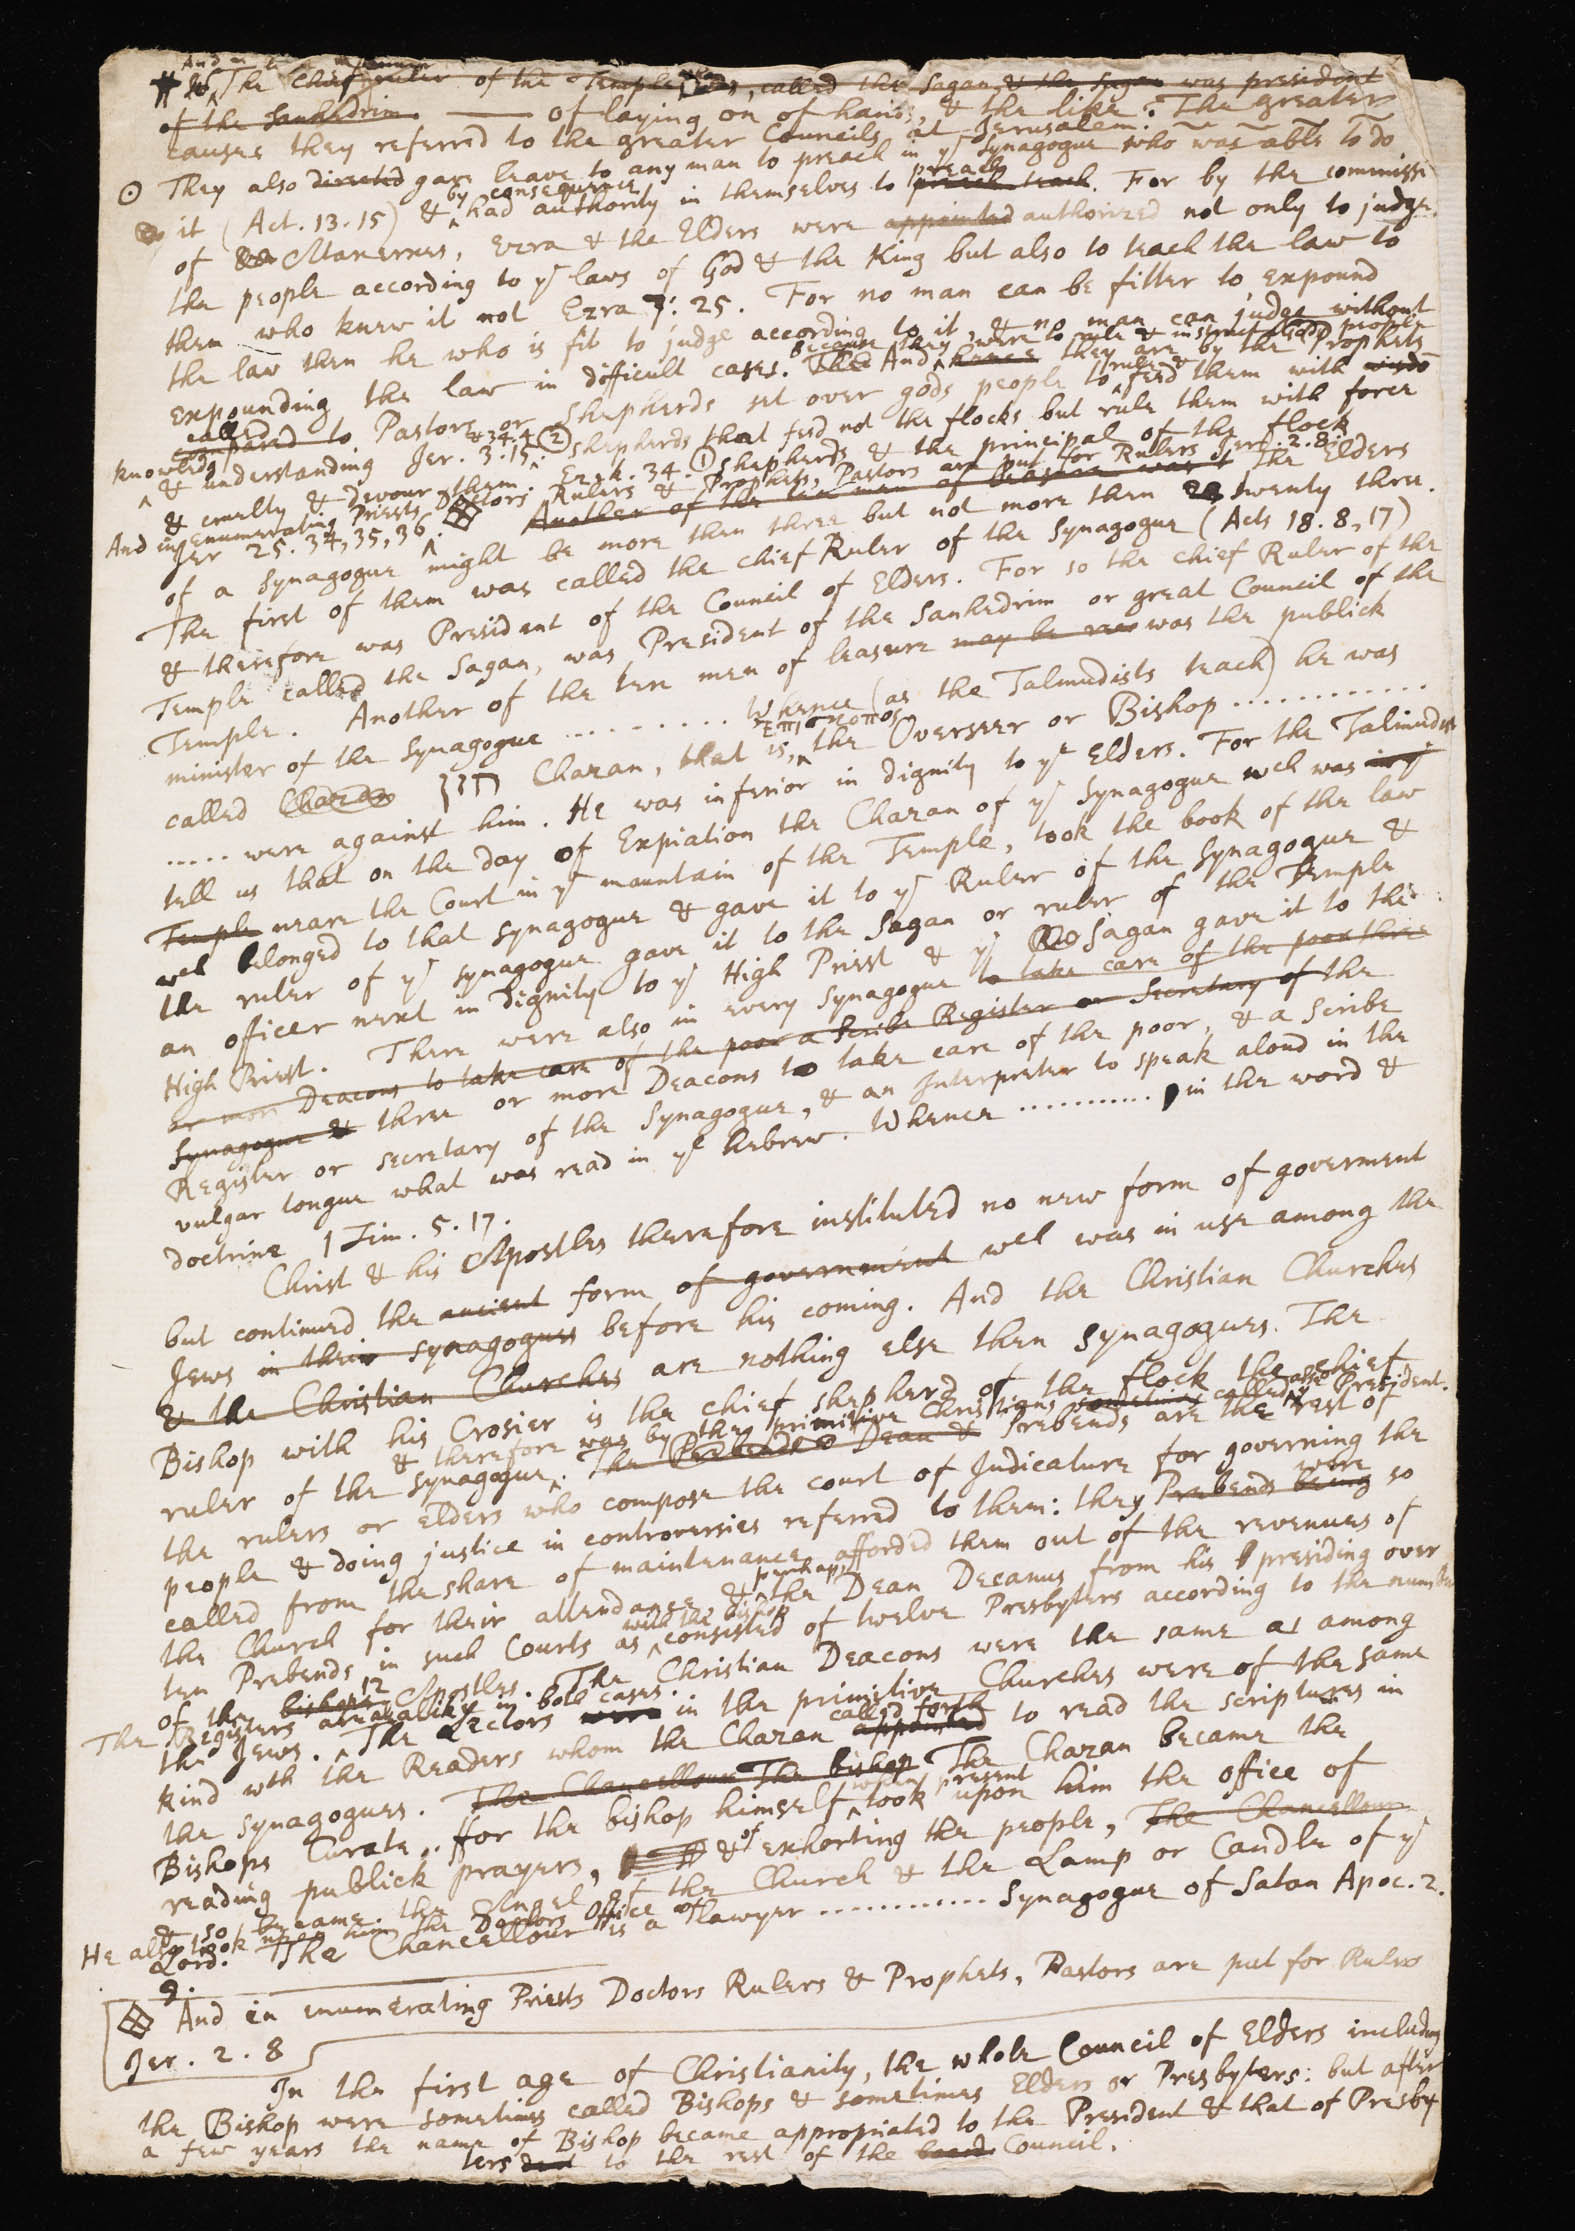 And in
The Chief ruler of the Temple was, called the Sagan, & the Sagan was president
of the Sanhedrim —— of laying on of hands, & the like. The greater
causes they referred to the greater Councils at Jerusalem.
⊙ They also directed gave leave to any man to preach in yͤ Synagogue who was able to do
it (Act. 13.15) & by consequence had authority in themselves to preach teach preach. For by the commissi
of Artaxerxes, Ezra & the Elders were appointed authorized not only to judge
the people according to yͤ laws of God & the King but also to teach the law to
them who knew it not Ezra 7: 25. For no man can be fitter to expound
the law then he who is fit to judge according to it, & no man can judge without
expounding the law in difficult cases. And because they were to rule & instruct Gods people hence they are by the Prophets
called compared to Pastors or Shepherds set over gods people to rule & feed them with
knowledg & understanding Jer. 3.15. & 34.4 ② shepherds that feed not the flocks but rule them with force
& cruelty & devour them. Ezek. 34. ① shepherds & the principal of the flock
Jer 25. 34, 35, 36. And in enumerating Priests, Doctors Rulers & Prophets, Pastors are put for Rulers Jer. 2.8.
Another of the ten men of leasure was The Elders
of a Synagogue might be more then three but not more then twenty three.
The first of them was called the chief Ruler of the Synagogue (Acts 18. 8, 17)
& therefore was President of the Council of Elders. For so the chief Ruler of the
Temple called the Sagan, was President of the Sanhedrim or great Council of the
Temple. Another of the ten men of leasure may be was the publick
minister of the Synagogue ........ Whence (as the Talmudists teach) he was
called Chazan חזן Chazan, that is, επισκοπος the Overseer or Bishop ............
..... were against him. He was inferior in dignity to yͤ Elders. For the Talmudists
tell us that on the day of Expiation the Chazan of yͤ Synagogue wch was in yͤ
Temple neare the Court in yͤ mountain of the Temple, took the book of the law
wch belonged to that synagogue & gave it to yͤ Ruler of the Synagogue &
the ruler of yͤ synagogue gave it to the Sagan or ruler of the Temple
an officer next in dignity to yͤ High Priest & yͤ Sagan gave it to the
High Priest. There were also in every synagogue to take care of the poor three
or more Deacons to take care of the poor a Scribe Register or Secretary of the
Synagogue & three or more Deacons to take care of the poor, & a Scribe
Register or secretary of the Synagogue, & an Interpreter to speak aloud in the
vulgar tongue what was read in yͤ hebrew. Whence ............ in the word &
doctrine 1 Tim. 5. 17.
Christ & his Apostles therefore instituted no new form of goverment
but continued the ancient form of government wch was in use among the
Jews in their synagogues before his coming. And the Christian Churches
& the Christian Churches are nothing else then Synagogues. The
Bishop with his Crosier is the chief shepherd of the flock the chief
ruler of the Synagogue & therefore was by the primitive Christians sometimes called also yͤ President.
The Prebends Dean & Prebends are the rest of
the rulers or Elders who compose the court of Judicature for governing the
people & doing justice in controversies referred to them: they Prebends being were so
called from the share of maintenance afforded them out of the revenues of
the Church for their attendance, & perhaps the Dean Decanus from his presiding over
ten Prebends in such Courts as with the bishop consisted of twelve Presbyters according to the number
of the bishops 12 Apostles. The Christian Deacons were the same as among
the Jews. The Registers are alike in both cases. The Lectors were in the primitive Churches were of the same
kind wth the Readers whom the Chazan appointed called forth to read the scriptures in
the synagogues. The Chancellour The bishop The Chazan became the
Bishops Curate. ffor the bishop himself when present took upon him the office of
reading publick prayers, & of exhorting the people, The Chancellour
& so became the Angel of the Church & the Lamp or Candle of yͤ
Lord. He also took upon him the Doctors Office The Chancellour is a Lawyer ............ Synagogue of Satan Apoc. 2.
9.
And in enumerating Priests Doctors Rulers & Prophets, Pastors are put for Rulers
Jer. 2. 8
In the first age of Christianity, the whole Council of Elders including
the Bishop were sometimes called Bishops & sometimes Elders or Presbyters: but after
a few years the name of Bishop became appropriated to the President & that of Presby
ters to the rest of the board Council.